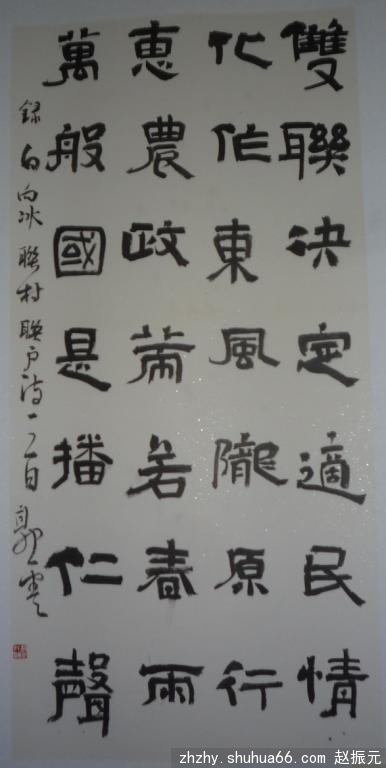 雙聯决定適民情
化作東風隴原行
惠農政策若春雨
萬般國是播仁聲
録白向冰聯村聯户诗一首
zhzhy.shuhua66.com 赵振元